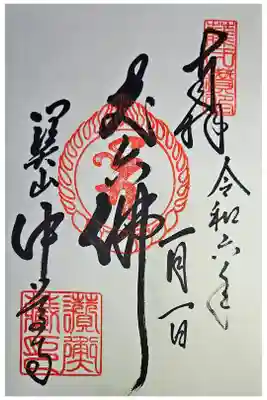 奉拝
令和六年
一月一日
丈六佛
関山
中尊寺
讃衡
蔵印